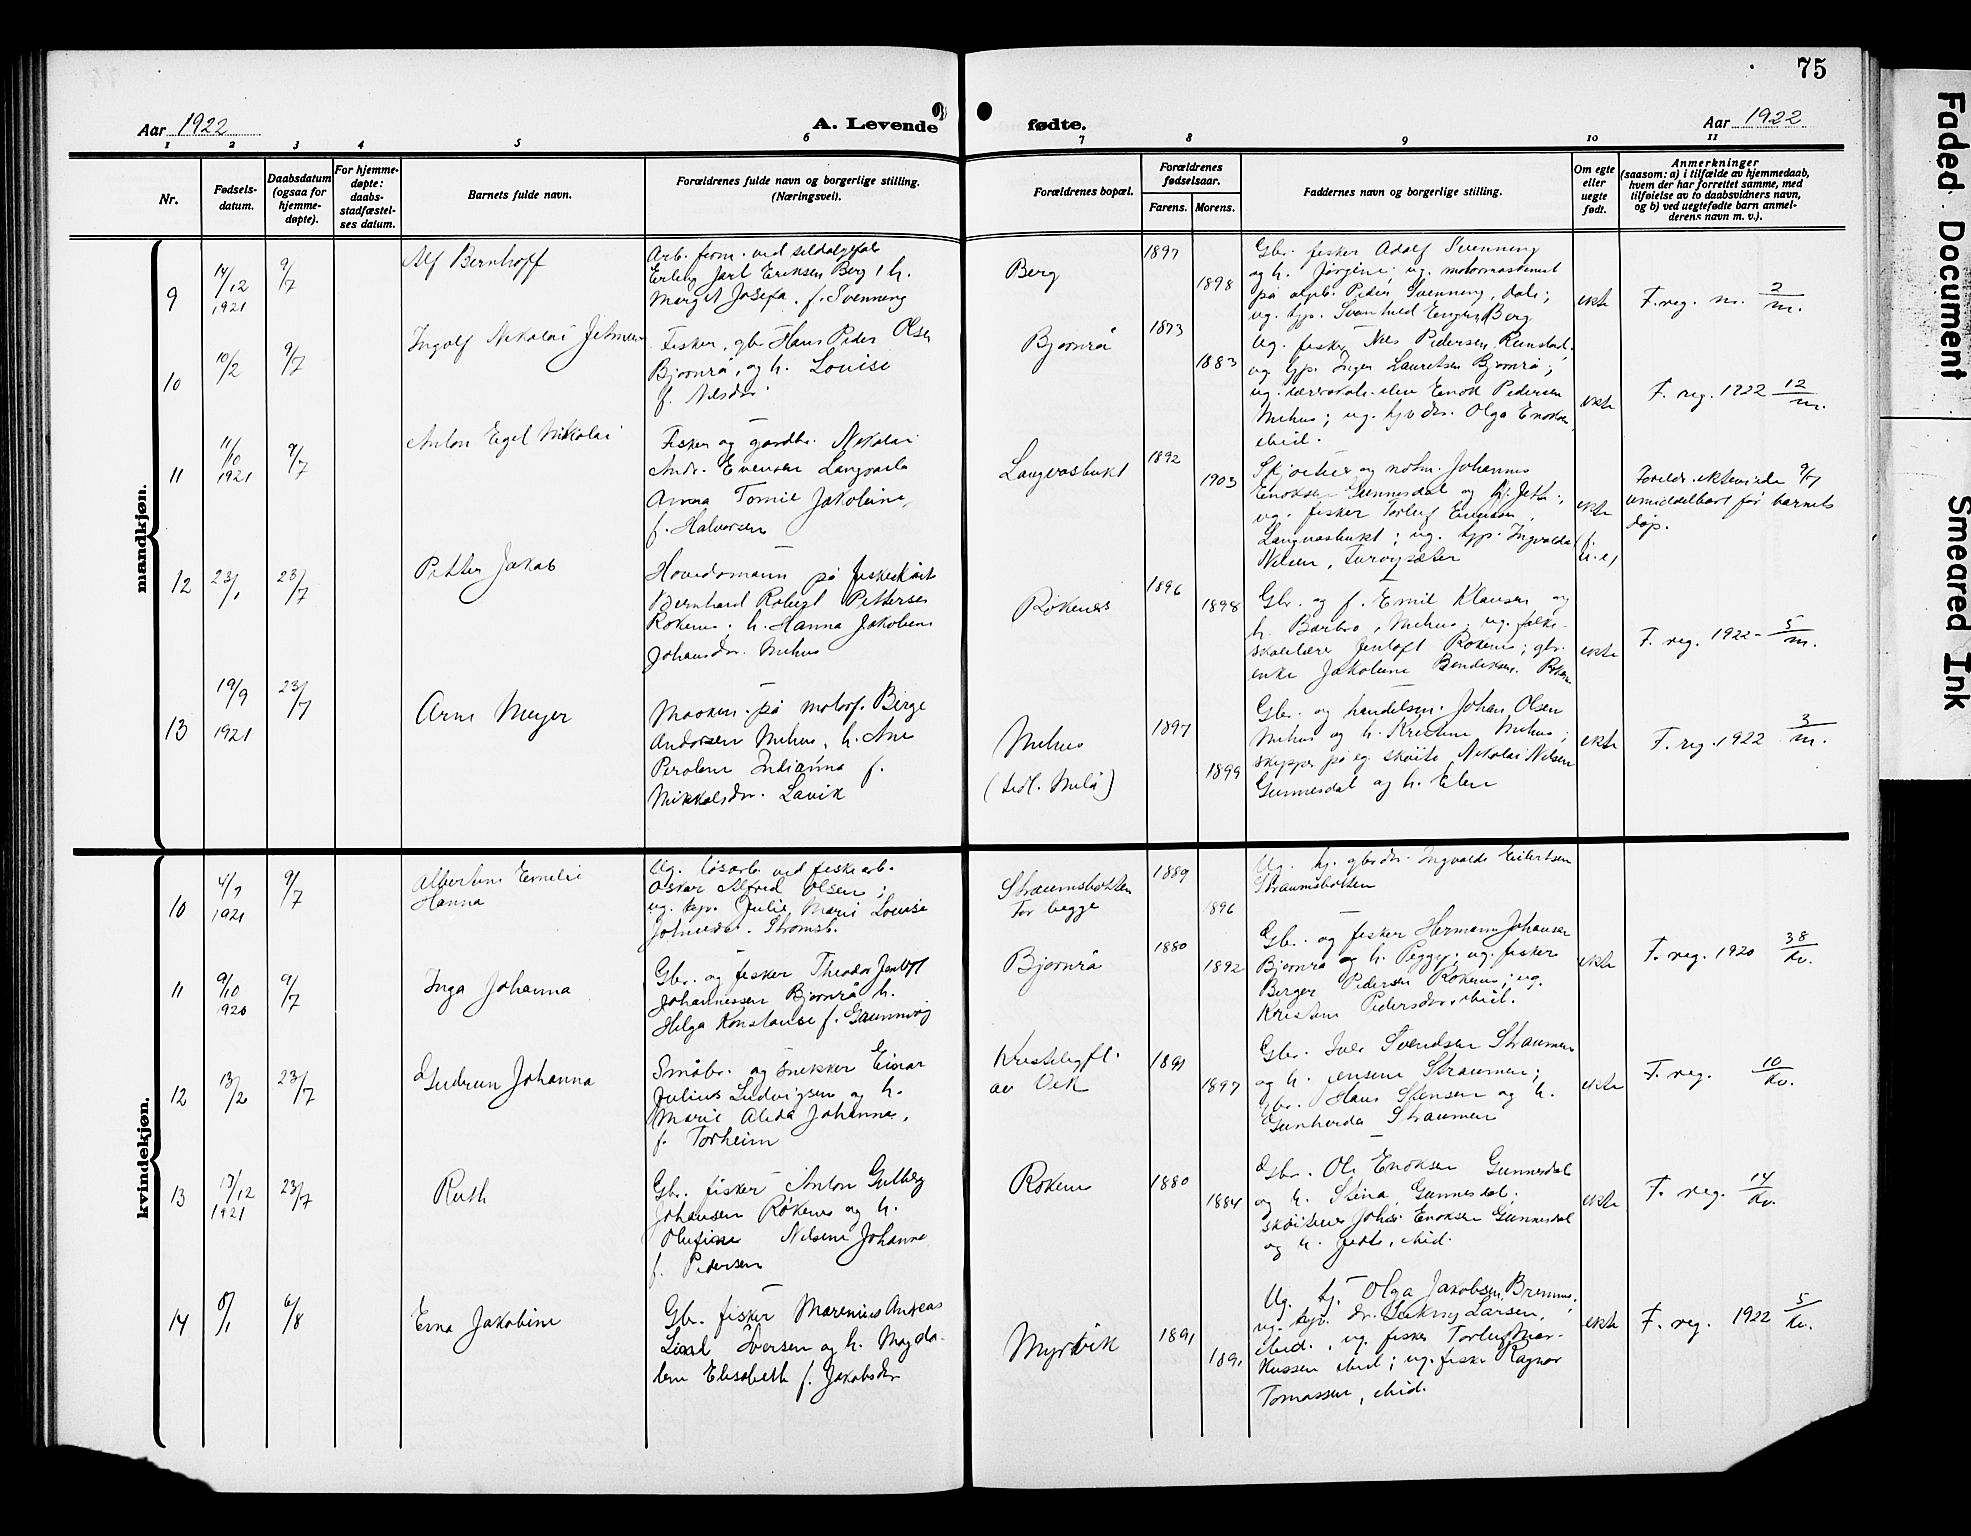 75
Aar 1922
A. Levende
fødte.
Aar 1922
1 2 3 4 5 6 7 8 9 10 11
Nr.
Fødsels-
datum.
Daabsdatum
(ogsaa for
hjemme-
døpte).
For hjemme-
døpte:
daabs-
stadfæstel-
ses datum.
Barnets fulde navn.
Forældrenes fulde navn og borgerlige stilling.
(Næringsvei).
Forældrenes bopæl.
Forældrenes
fødselsaar.
Farens. Morens.
Faddernes navn og borgerlige stilling.
Om egte
eller
uegte
født.
Anmerkninger
(saasom: a) i tilfælde av hjemmedaab,
hvem der har forrettet samme, med
tilføielse av to daabsvidners navn,
og b) ved uegtefødte barn anmel-
derens navn m. v.).
mandkjøn.
9
14/12
1921
9/7
Alf Bernhoff
Erling Jarl Eriksen Berg, h.
Margit Josefa, f. Svenning
Berg
1897
1898
Gbr. fisker Adolf Svenning
og h. Jørgine; ug. motormaskinist
ekte
F. reg. m. 2/m.
10
10/2
9/7
Ingolf Nikolai
Fisker, gbr Hans Peder Olsen
Bjørnrå, og h. Louise
f. Nilsdr.
Bjørnrå
1873
1883
Ug. fisker Nils Pedersen
og tjp. Inger Lauretsen Bjørnrå;
Enok Pedersen
Mehus; ug. Olga
ibid.
ekte
F. reg. 1922 12/m.
11
11/10
1921
9/7
Anton Egil Nikolai
Fisker og gardbr. Nikolai
Andr. Evensen
Anna Jakobine,
f. Halvorsen
Langvasbukt
1892
1903
Johannes
Enoksen Gunnesdal og
ug. fisker Torleif
Langvasbukt; ug. tjp. Ingvalda
Nilsen,
ekte
Foreldr. ektevidde 9/7
umiddelbart før barnets
dåp.
12
23/1
23/7
Petter Jakob
Hovedsmann på fiskeskøit
Bernhard Robert Pettersen
Røkenes, h. Hanna Jakobine
Johansdr. Mehus
Røkenes
1896
1898
Gbr. og f. Emil Klausen og
h. Barbro, Mehus; ug. folke-
skolelærer Jentoft Røkenes; gbr.
enke Jakobine Bendiksen,
ekte
F. reg. 1922 - 5/m.
13
19/9
1921
23/7
Arne Meyer
Maskin. på motorf. Birge
Andorsen Mehus, h. Ane
Peroline Indianna f.
Mikkelsdr. Lavik
Mehus
1897
1899
Gbr. og handelsm. Johan Olsen
Mehus og h. Kristine Mehus;
skipper på eg. skøite Nikolai Nilsen
Gunnesdal og h. Elen
ekte
F. reg. 1922 3/m.
kvindekjøn.
10
1921
9/7
Albertine Emelie
Hanna
Ug. løsarb. ved fiskearb.
Oskar Alfred Olsen;
ug. tjp. Julie Marie Louise
Straumsbotten
for begge
1889
1896
Ug. tj. gbrdr. Ingvalda Eilertsen
Straumsbotten
11
9/10
1920
9/7
Inga Johanna
Gbr. og fisker Theodor Jentoft
Johannessen Bjørnrå h.
Helga Konstanse f. Grunnvåg
Bjørnrå
1880
1892
Gbr. og fisker Hermann Johansen
Bjørnrå og h. Peggy; ug. fisker
Berger Pedersen Røkenes; ug.
Kristine Pedersdr. ibid.
ekte
F. reg. 1920 38/kv.
12
13/2
23/7
Gudrun Johanna
Småbr. og snekker Einar
Julius Ludvigsen og h.
Marie Alida Johanna,
f. Torheim
1891
1897
Gbr. Iver Svendsen Straumen
og h. Jensine Straumen;
gbr. Hans Stensen og h.
Straumen
ekte
F. reg. 10/kv.
13
13/12
1921
23/7
Ruth
Gbr. fisker Anton Gulberg
Johansen Røkenes og h.
Olufine Nilsine Johanna
f. Pedersen
Røkenes
1880
1884
Gbr. Ole Enoksen Gunnesdal
og h. Stina, Gunnesdal.
Johs. Enoksen Gunnesdal
og h. Jette, ibid.
ekte
F. reg. 14/kv.
14
8/1
6/8
Erna Jakobine
Gbr. fisker Marenius Andreas
Iversen og h. Magda-
lene Elisabeth f. Jakobsdr
Myrtvik
1891
1891
Ug. tj. Olga Jakobsen
ug. tjp. Larsen,
ibid., ug. fisker Torleif Mar-
kussen ibid; ug. fisker Ragnar
Tomassen, ibid.
ekte
F. reg. 1922 5/kv.
Faded Document
Smeared Ink